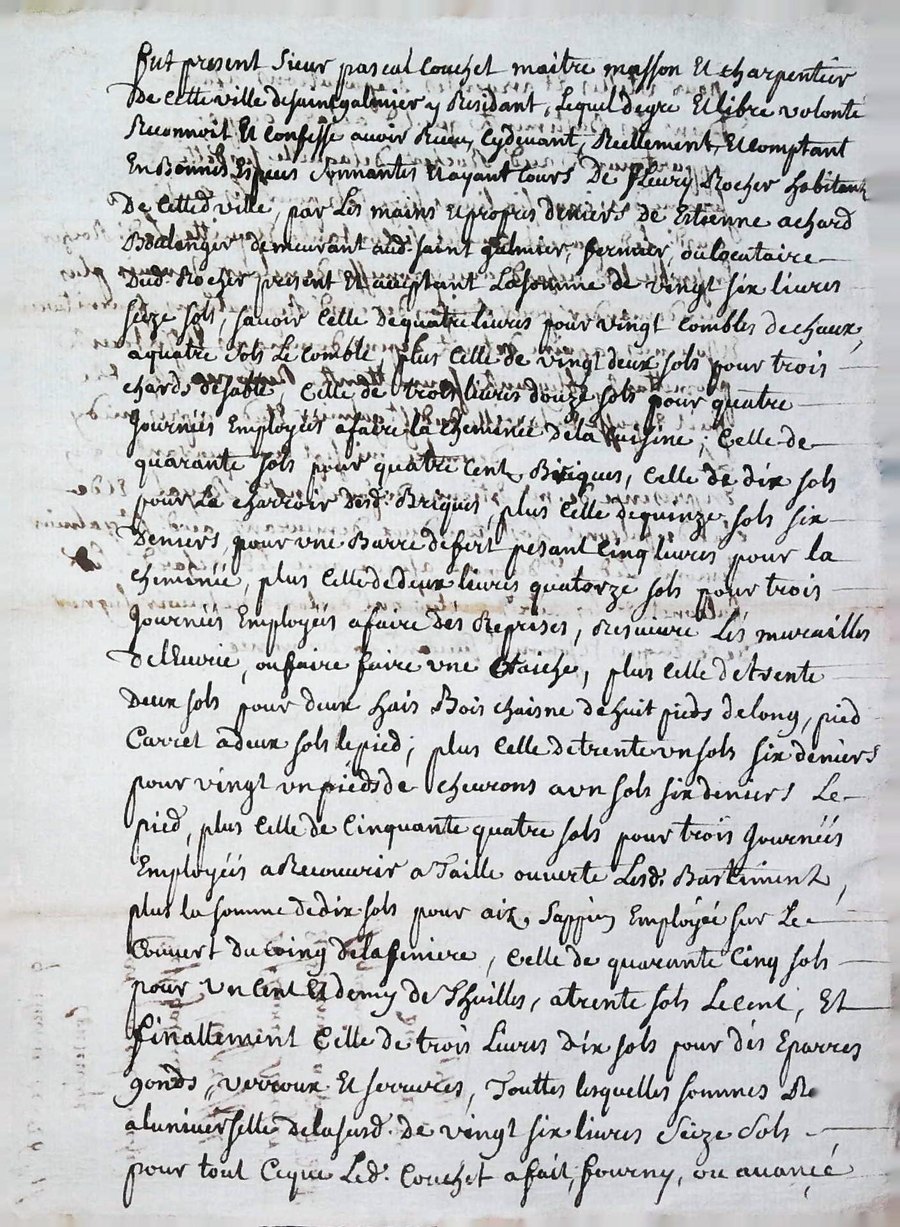 fut present Sieur pascal Couchet maitre masson et charpentier
De cette ville de saint galmier y Residant, Lequel de gre et libre volonté
Reconnoit et confesse avoir Receu, cydevant, Reellement, et comptant
En Bonnes Especes sonnantes et ayant Cours De fleury Rocher habitant
De cetted ville, par Les mains et propres deniers de Estienne achard
Boulenger demeurant aud. saint galmier, fermier, ou locataire
Dud. Rocher present et aceptant La somme de vingt six livres
seize sols, savoir Celle de quatre livres pour vingt Combles de chaux,
a quatre sols Le Comble, plus Celle de vingt deux sols pour trois
chards de sable, Celle de trois livres douze sols pour quatre
Journées Employées a faire la cheminée de la Cuisine, Celle de
quarante sols pour quatre cent Briques, Celle de dix sols
pour Le charroir desd. Briques, plus Celle de quinze sols six
Deniers pour une Barre de fert pesant Cinq livres pour la
cheminée, plus Celle de deux livres quatorze sols pour trois
Journées Employées a faire des Reprises, Resuivre Les murailles
De l'Eurie, ou faire faire une Craiche, plus Celle de trente
Deux sols pour deux hais Bois chaisne de huit pieds de long, pied
Carret a deux sols le pied; plus Celle de trente un sols six deniers
pour vingt un pieds de chevrons a un sols six deniers Le
pied, plus Celle de Cinquante quatre sols pour trois Journées
Employées a Recouvrir a Taille ouverte Lesd. Bastiment,
plus la somme de dix sols pour aix Sappin Employée sur Le
Couvert du Coing de la finiere, Celle de quarante Cinq sols
pour un Cent et demy de Thuilles, a trente sols Le Cent, Et
finallement Celle de trois Livres dix sols pour des Eparres
gonds, verroux Et serrures, Touttes lesquelles sommes Re
a l'universelle de la susd. de vingt six livres Seize Sols
pour tout Ceque Led. Couchet a fait, fourny, ou avancé